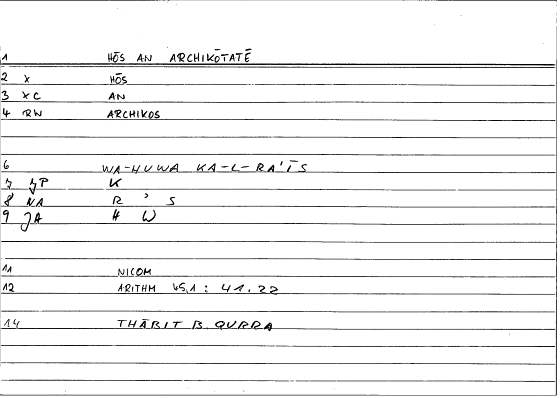 1 HŌS AN ARCHIKŌTATĒ
2 X HŌS
3 XC AN
4 RW ARCHIKOS
6 WA-HUWA KA-L-RA'ĪS
7 JP K
8 NA R ' S
9 JA H W
11 NICOM
12 ARITHM 45,1 : 41.22
14 THĀBIT B. QURRA